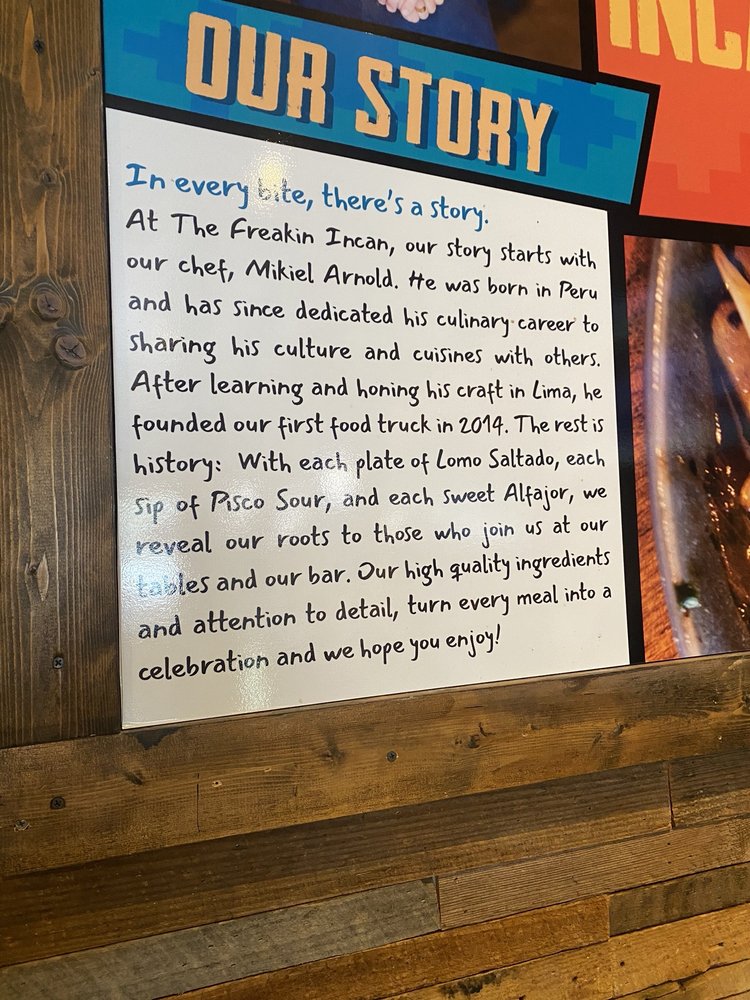 OUR STORY
In every bite, there's a story.
At The Freakin Incan, our story starts with
our chef, Mikiel Arnold. He was born in Peru
and has since dedicated his culinary career to
sharing his culture and cuisines with others.
After learning and honing his craft in Lima, he
founded our first food truck in 2014. The rest is
history: With each plate of Lomo Saltado, each
sip of Pisco Sour, and each sweet Alfajor, we
reveal our roots to those who join us at our
tables and our bar. Our high quality ingredients
and attention to detail, turn every meal into a
celebration and we hope you enjoy!